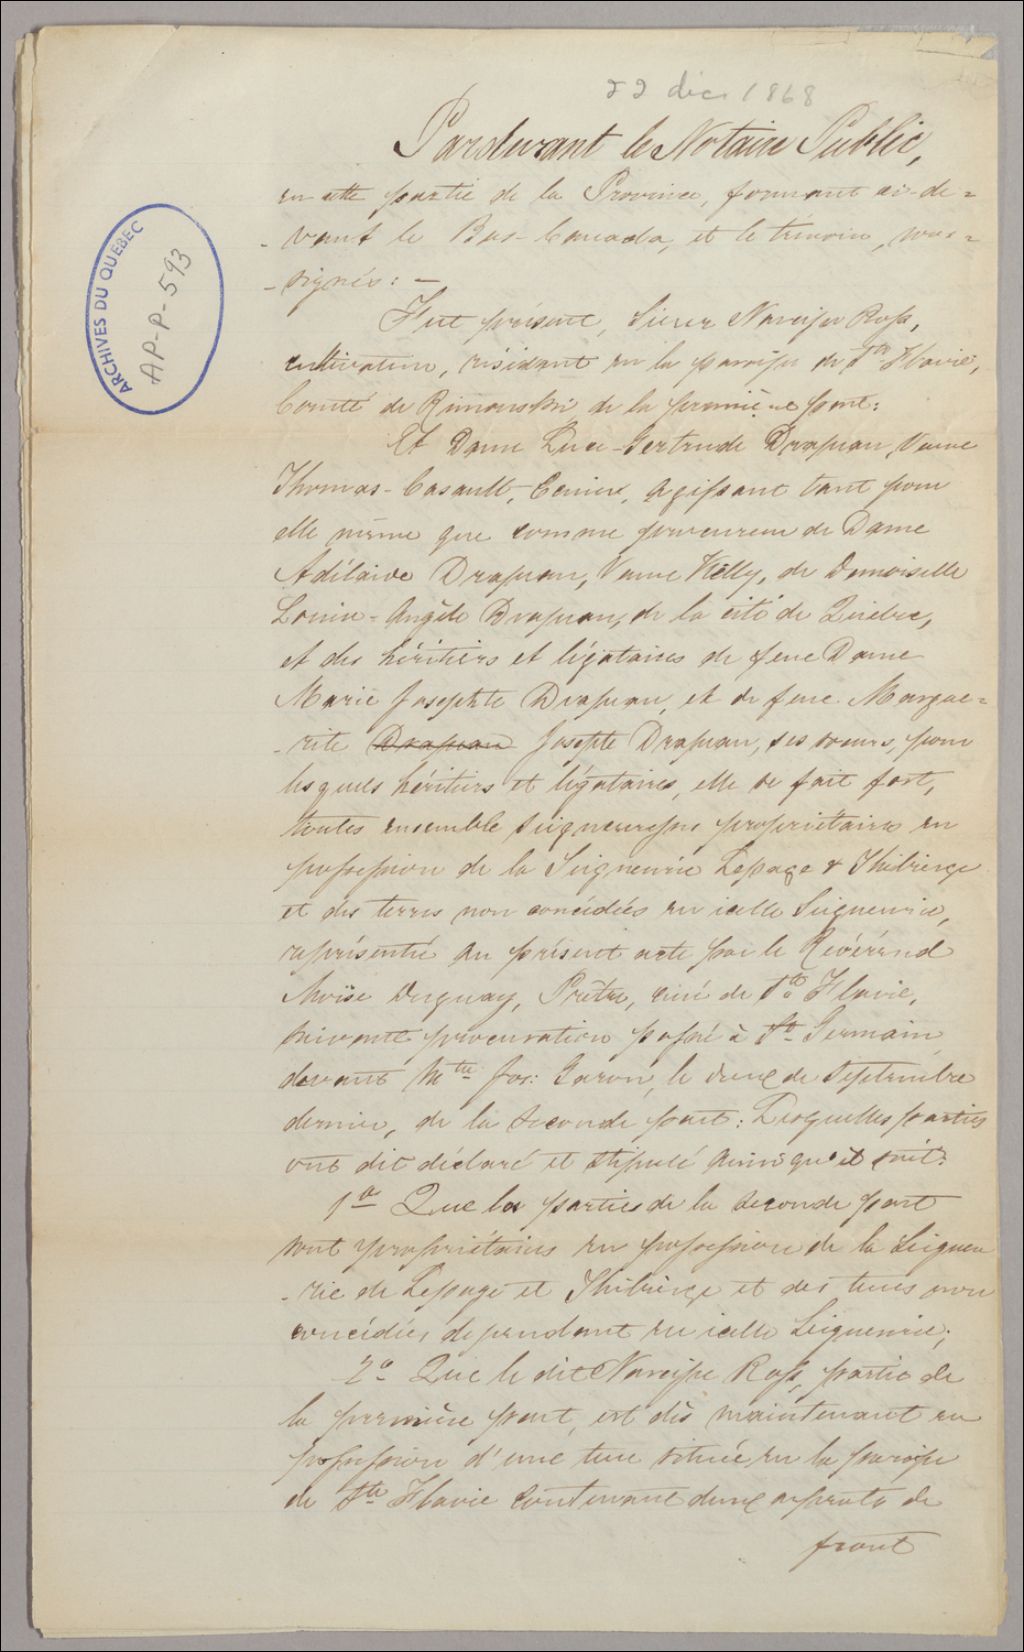 22 déc 1868
Pardevant le Notaire Public,
en cette partie de la Province, formant ci-de=
- vant le Bas-Canada, et le témoin, sous=
- signés: -
Fut présent, Sieur Narcisse Ross,
cultivateur, résidant en la paroisse de Ste Flavie,
Comté de Rimouski, de la première part:
Et Dame Luce-Gertrude Drapeau, Veuve
Thomas-Casault, Ecuier, agissant tant pour
elle même que comme procureur de Dame
Adélaïde Drapeau, Veuve Kelly, de Demoiselle
Louise-Angèle Drapeau, de la cité de Québec,
et des héritiers et légataires de feue Dame
Marie Josephte Drapeau, et de feue Margue=
- rite Drapeau Josepte Drapeau, ses sœurs, pour
lesquels héritiers et légataires, elle se fait fort,
toutes ensemble Seigneuresses propriétaires en
possession de la Seigneurie Lepage & Thibierge
et des terres non concédées en icelle Seigneurie,
représentée au présent acte par le Révérend
Moïse Duguay, Prêtre, curé de Ste Flavie,
suivant procuration passée à St Germain
devant Mtre Jos: Garon, le deux de Septembre
dernier, de la seconde part: Lesquelles parties
ont dit déclaré et stipulé ainsi qu'il suit:
1o Que les parties de la seconde part
sont propriétaires en possession de la Seigneu
- rie de Lepage et Thibierge et des terres non
concédées dependant en icelle Seigneurie;
2o Que le dit Narcisse Ross, partie de
la première part, est dès maintenant en
possession d'une terre située en la paroisse
de Ste Flavie contenant deux arpents de
front
ARCHIVES DU QUEBEC
AP-P-593